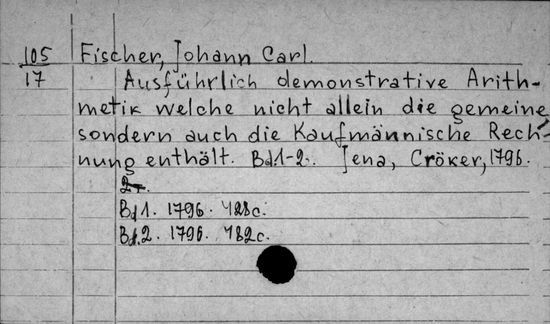 105 Fischer, Johann Carl.
17 Ausführlich demonstrative Arith-
metik welche nicht allein die gemeine
sondern auch die Kaufmännische Rech-
nung enthält. Bd 1-2. Jena, Cröker, 1796.
Bd 1. 1796. 428 c.
Bd. 2. 1796. 482 c.